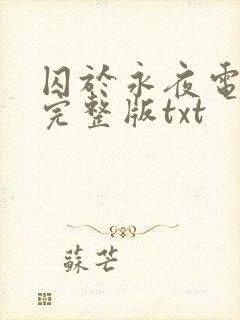 囚於永夜電
完整版txt
蘇芒